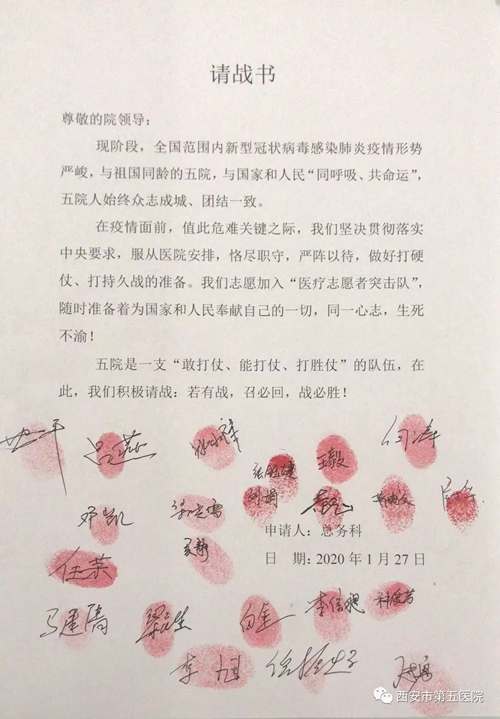 请战书
尊敬的院领导：
现阶段，全国范围内新型冠状病毒感染肺炎疫情形势
严峻，与祖国同龄的五院，与国家和人民“同呼吸、共命运”，
五院人始终众志成城、团结一致。
在疫情面前，值此危难关键之际，我们坚决贯彻落实
中央要求，服从医院安排，恪尽职守，严阵以待，做好打硬
仗、打持久战的准备。我们志愿加入“医疗志愿者突击队”，
随时准备着为国家和人民奉献自己的一切，同一心志，生死
不渝！
五院是一支“敢打仗、能打仗、打胜仗”的队伍，在
此，我们积极请战：若有战，召必回，战必胜！
吕燕 王毅 何涛
邓凯
申请人：总务科
日　期：2020 年 1 月 27 日
任荣
李旭
西安市第五医院